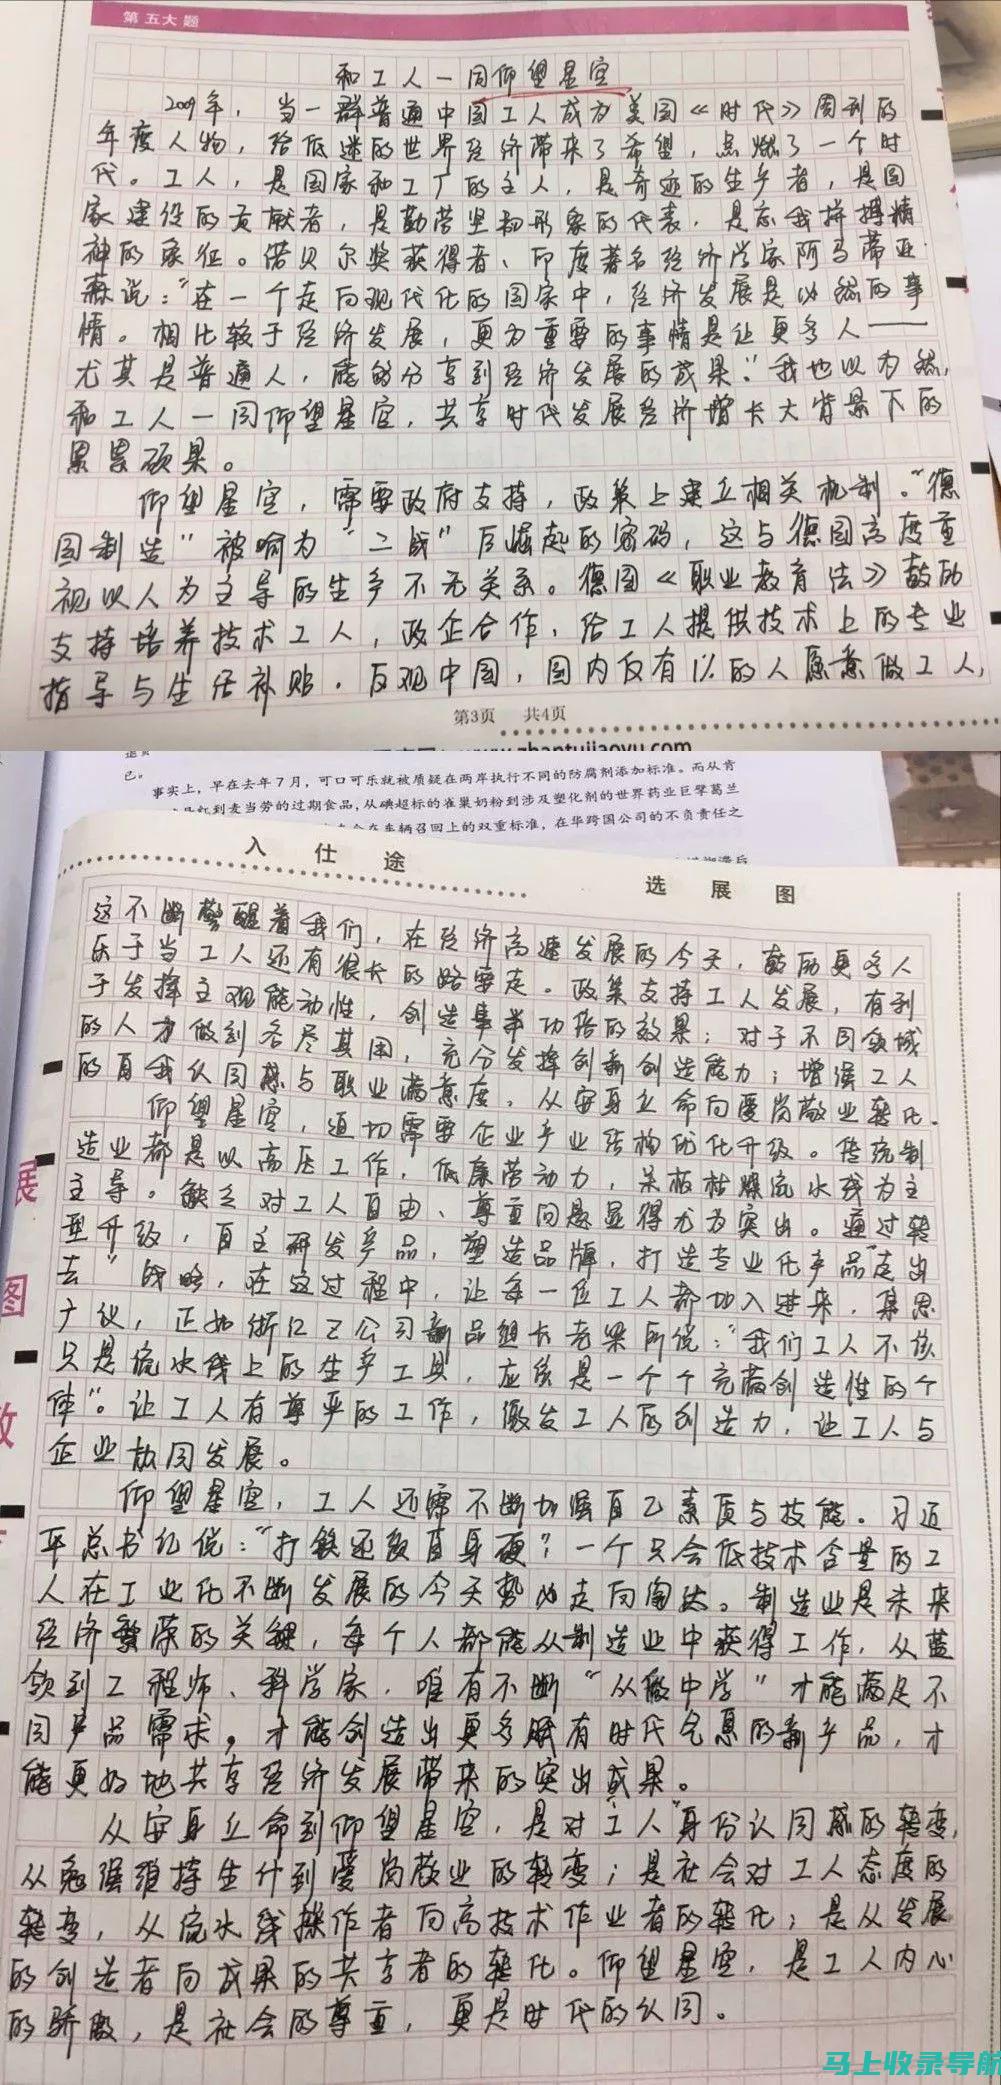 第五大题
和工人一同仰望星空
2009年，当一群普通中国工人成为美国《时代》周刊的
年度人物，给低迷的世界经济带来了希望，点燃了一个时
代。工人，是国家和工厂的主人，是奇迹的生产者，是国
家建设的贡献者，是勤劳坚韧形象的代表，是忘我拼搏精
神的象征。诺贝尔奖获得者、印度著名经济学家阿马蒂亚·
森说：“在一个走向现代化的国家中，经济发展是必然的事
情。相比较于经济发展，更为重要的事情是让更多人——
尤其是普通人，能够分享到经济发展的成果。”我也以为然，
和工人一同仰望星空，共享时代发展经济增长大背景下的
累累硕果。
仰望星空，需要政府支持，政策上建立相关机制。“德
国制造”被喻为“二战”后崛起的密码，这与德国高度重
视以人为主导的生产不无关系。德国《职业教育法》鼓励
支持培养技术工人，政企合作，给工人提供技术上的专业
指导与生活补贴。反观中国，国内仅有1%的人愿意做工人，
第3页 共4页
www.zhantujiaoyu.com
已。
事实上，早在去年7月，可口可乐就被质疑在两岸执行不同的防腐剂添加标准。而从肯
到麦当劳的过期食品，从碘超标的雀巢奶粉到涉及塑化剂的世界药业巨擘葛兰
车辆召回上的双重标准，在华跨国公司的不负责任之
入仕途
选展图
这不断警醒着我们，在经济高速发展的今天，鼓励更多人
乐于当工人还有很长的路要走。政策支持工人发展，有利
于发挥主观能动性，创造事半功倍的效果；对于不同领域
的人才做到各尽其用，充分发挥创新创造能力；增强工人
的自我认同感与职业满意度，从安身立命向爱岗敬业转化。
仰望星空，迫切需要企业产业结构优化升级。传统制
造业都是以高压工作，低廉劳动力，呆板枯燥流水线为主
主导。缺乏对工人自由、尊重问题显得尤为突出。通过转
型升级，自主研发产品，塑造品牌，打造专业化产品“走出
去”战略，在这过程中，让每一位工人都加入进来，集思
广议，正如浙江Z公司新品组长老梁所说：“我们工人不该
只是流水线上的生产工具，应该是一个个充满创造性的个
体”。让工人有尊严的工作，激发工人的创造力，让工人与
企业协同发展。
仰望星空，工人还需不断加强自己素质与技能。习近
平总书记说：“打铁还须自身硬？一个只会低技术含量的工
人在工业化不断发展的今天势必走向淘汰。制造业是未来
经济繁荣的关键，每个人都能从制造业中获得工作，从蓝
领到工程师、科学家，唯有不断“从做中学”才能满足不
同产品需求，才能创造出更多赋有时代气息的新产品，才
能更好地共享经济发展带来的突出成果。
从安身立命到仰望星空，是对工人“身份认同感的转变，
从勉强维持生计到爱岗敬业的转变；是社会对工人态度的
转变，从流水线操作者向高技术作业者的转化；是从发展
的创造者向成果的共享者的转化。仰望星空，是工人内心
的骄傲，是社会的尊重，更是时代的认同。
展
图
教
马上收录导航